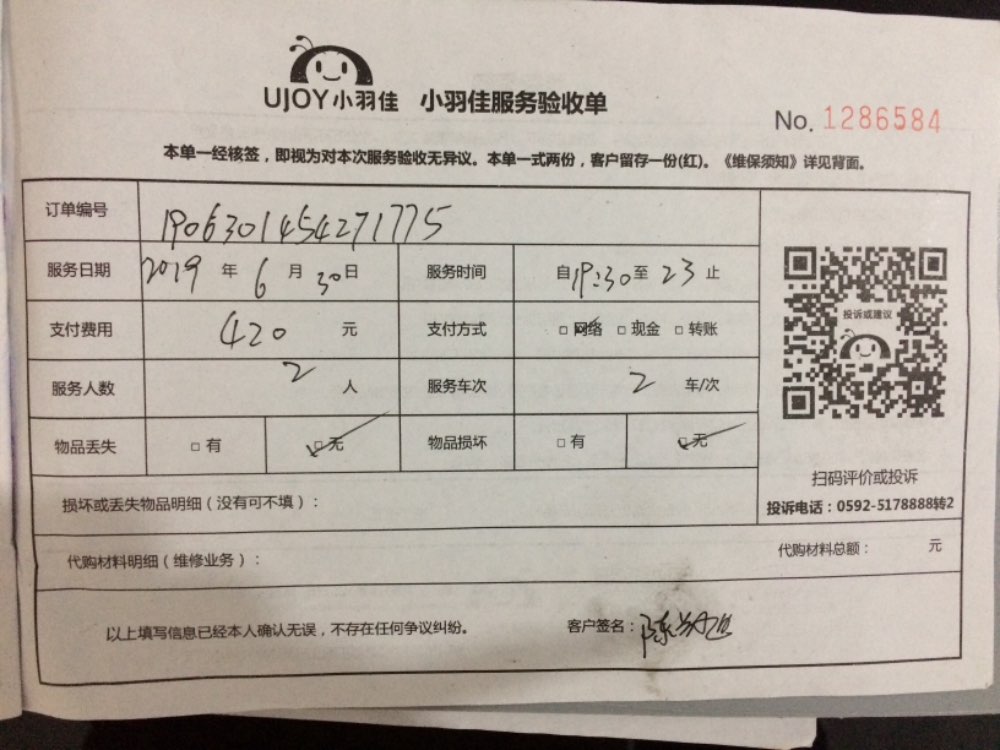 UJOY小羽佳 小羽佳服务验收单
No. 1286584
本单一经核签，即视为对本次服务验收无异议。本单一式两份，客户留存一份(红)。《维保须知》详见背面。
订单编号 190630145427177​5
服务日期 2019 年 6 月 30 日 服务时间 自 19:30 至 23 止
支付费用 420 元 支付方式 □网络 □现金 □转账
服务人数 2 人 服务车次 2 车/次
物品丢失 □有 ☑无 物品损坏 □有 ☑无
投诉或建议
扫码评价或投诉
投诉电话：0592-5178888转2
损坏或丢失物品明细（没有可不填）：
代购材料明细（维修业务）： 代购材料总额： 元
以上填写信息已经本人确认无误，不存在任何争议纠纷。 客户签名：陈